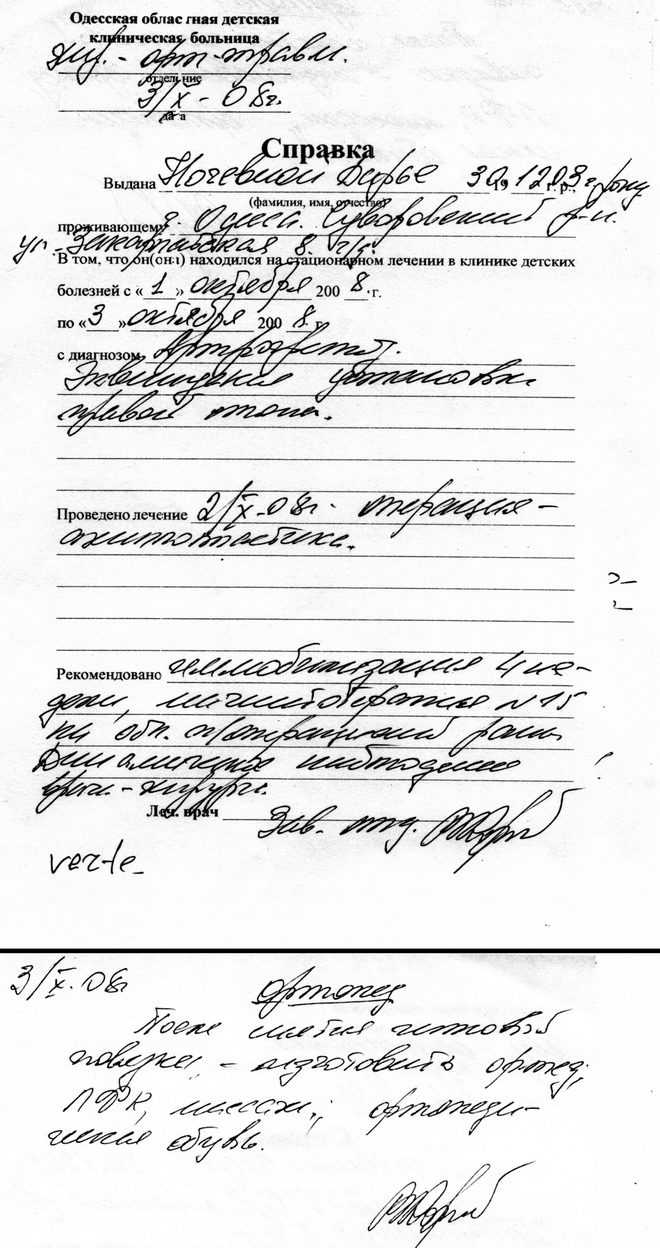 Одесская областная детская
клиническая больница
хир.-орт-травм.
отделение
3/X-08г.
дата
Справка
Выдана Ночевной Дарье 30.12.03 г.р.
(фамилия, имя, отчество)
проживающему г. Одесса. Суворовский р-н.
ул. 8
В том, что он(она) находился на стационарном лечении в клинике детских
болезней с «1» октября 2008.г.
по «3» октября 2008.г.
с диагнозом Артрогрипоз.
Эквинусная установка
правой стопы.
Проведено лечение 2/X-08г. операция-
ахиллопластика.
Рекомендовано иммобилизация 4 не-
дели, магнитотерапия N15
на обл. п/операционной раны
Динамическое наблюдение
врач-хирурга.
Леч. врач Зав. отд.
verte
3/X.08г ортопед
После снятия гипсовой
повязки - изготовить ортез,
ЛФК, массаж, ортопеди-
ческая обувь.